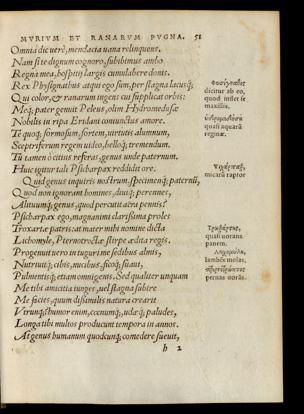 MVRIVM ET RANARVM PVGNA. 51
Omnia dic uerè, mendacia uana relinquens.
Nam si te dignum cognoro, subibimus ambo
Regna mea, hospitij largis cumulabere donis.
Rex Physignathus atqui ego sum, per stagna lacusq́;
Qui color, & ranarum ingens cui supplicat orbis:
Meq́; pater genuit Peleus, olim Hydromedusæ
Nobilis in ripa Eridani coniunctus amore.
Te quoq; formosum, fortem, uirtutis alumnum,
Sceptriferum regem uideo, belloq́; tremendum.
Tu tamen ò citius referas, genus unde paternum.
Huic igitur tali Psicharpax reddidit ore:
Quid genus inquiris nostrum, specimenq́; paternũ,
Quod non ignorant homines, diuiq́; perennes,
Altiuumq́; genus, quod percutit aëra pennis?
Psicharpax ego, magnanimi clarissima proles
Troxartæ patris: at mater mihi nomine dicta
Lichomyle, Pternotroctæ stirpe ædita regis.
Progenuit uero in tuguri me sedibus almis,
Nutriuitq́; cibis, nucibus, ficoq́; suaui,
Pulmentisq́; etiam omnigenis. Sed qualiter unquam
Me tibi amicitia iunges, uel stagna subire
Me facies, quum dissimilis natura crearit
Vtrunq́;? humor enim, cœnumq́;, udæq́; paludes,
Longa tibi multos producunt tempora in annos.
At genus humanum quodcunq́; comedere sueuit,
h 2
Φυσίγναθος
dicitur ab eo,
quod inflet se
maxillis.
ὑδρομεδύσα
quasi aquarũ
reginæ.
Ψιχάρπαξ,
micarũ raptor
Τρωξάρτης,
quasi uorans
panem.
Λειχομύλη,
lambẽs molas,
πτερνοτρώκτης
pernas uorãs.